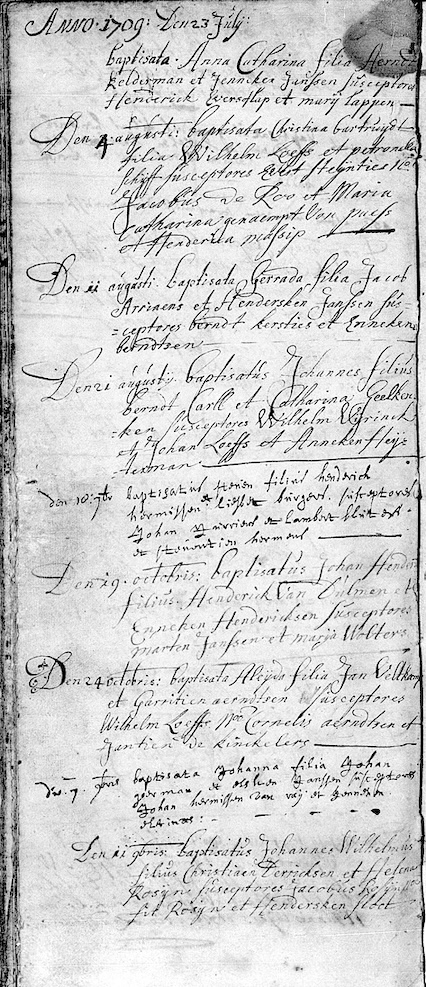 ANNO 1709: Den 23 July:
baptisata Anna Catharina filia Herndt
Kelderman et Jenneken Janssen susceptores
Henderick Everslap et mary tappen
Den 4 augusti: baptisata Christina bartruydt
filia Wilhelm Loeffs et petronella
Schiff susceptores
Jacobus de Roo et Maria
Catharina genaempt Von
et Henderica
Den 11 augusti. baptisata Gerrada filia Jacob
Arriaens et Hendersken Janssen sus=
=ceptores berndt kersties et Enneken
berndtsen
Den 21 augusty. baptisatus Johannes filius
berndt Carll et Catharina Geelken
=ken susceptores Wilhelm
et Johan Loeffs et Anneken Heyt
=terman
den 10 7br baptisatus steven filius henderick
hermissen et liesbet burgers. susceptores
Johan et lambert
et steventien hermens
Den 19. octobris: baptisatus Johan Hender
filius Henderick Van Dulmen et
Enneken Hendericksen susceptores
marten Janssen et marya Wolters
Den 24 octobris: baptisata Aleyda filia Jan Veltkamp
et Garritien aerndtsen susceptores
Wilhelm Loeffs Cornelis aerndtsen et
Jantien De Kinckelers
den 9. 9bris baptisata Johanna filia Johan
et elsken Janssen susceptores
Johan hermissen van raÿ et
Den 11 9bris: baptisatus Johannes Wilhelmus
filius Christiaen Derricksen et Helena
Rosyn susceptores Jacobus
Rosyn et Hendersken floet